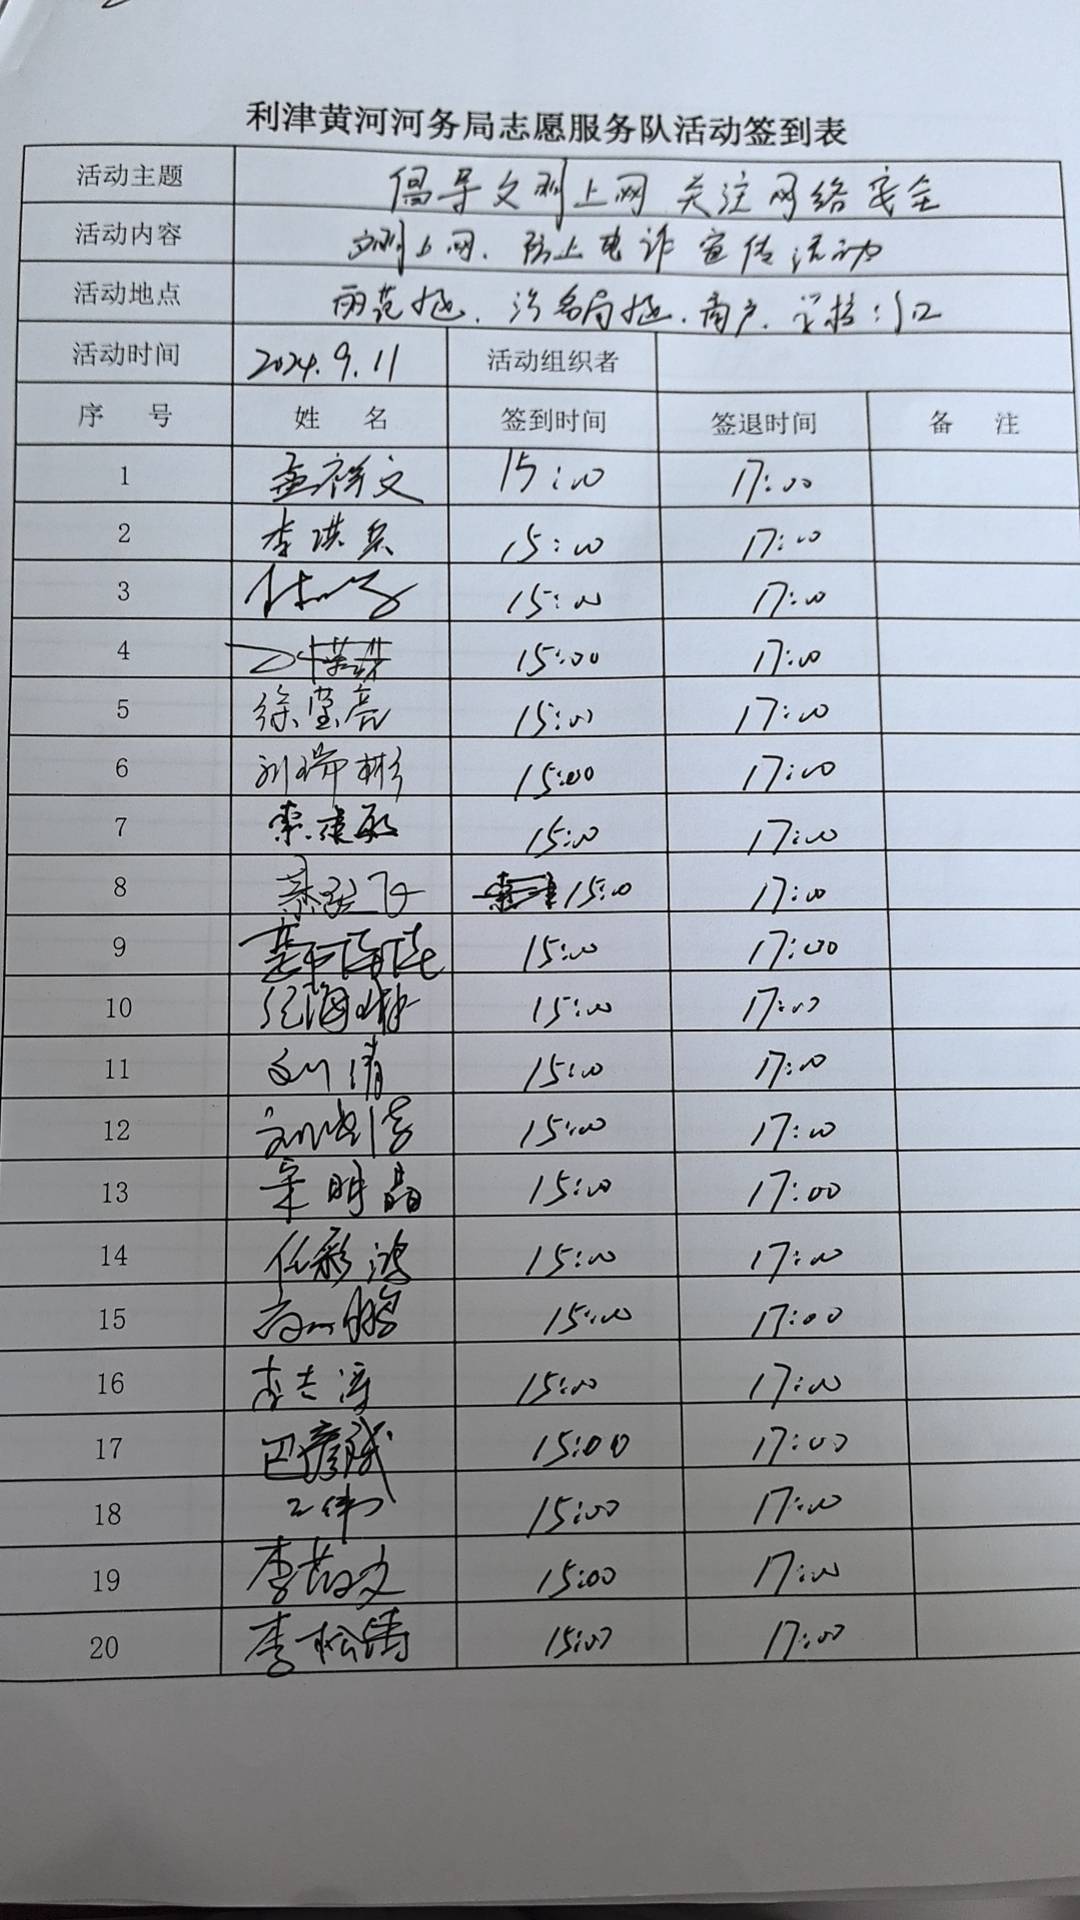 利津黄河河务局志愿服务队活动签到表
活动主题 倡导文明上网 关注网络安全
活动内容 文明上网、防止电诈宣传活动
活动地点 商户、学校门口
活动时间 2024.9.11 活动组织者
序 号 姓 名 签到时间 签退时间 备 注
1 孟祥文 15:00 17:00
2 李洪泉 15:00 17:00
3 15:00 17:00
4 15:00 17:00
5 徐莹亮 15:00 17:00
6 刘瑞彬 15:00 17:00
7 15:00 17:00
8 15:00 17:00
9 15:00 17:00
10 纪海珠 15:00 17:00
11 刘清 15:00 17:00
12 15:00 17:00
13 宋明晶 15:00 17:00
14 任彩鸿 15:00 17:00
15 高鹏 15:00 17:00
16 李志 15:00 17:00
17 巴彦斌 15:00 17:00
18 王伟 15:00 17:00
19 李茵文 15:00 17:00
20 李松涛 15:00 17:00